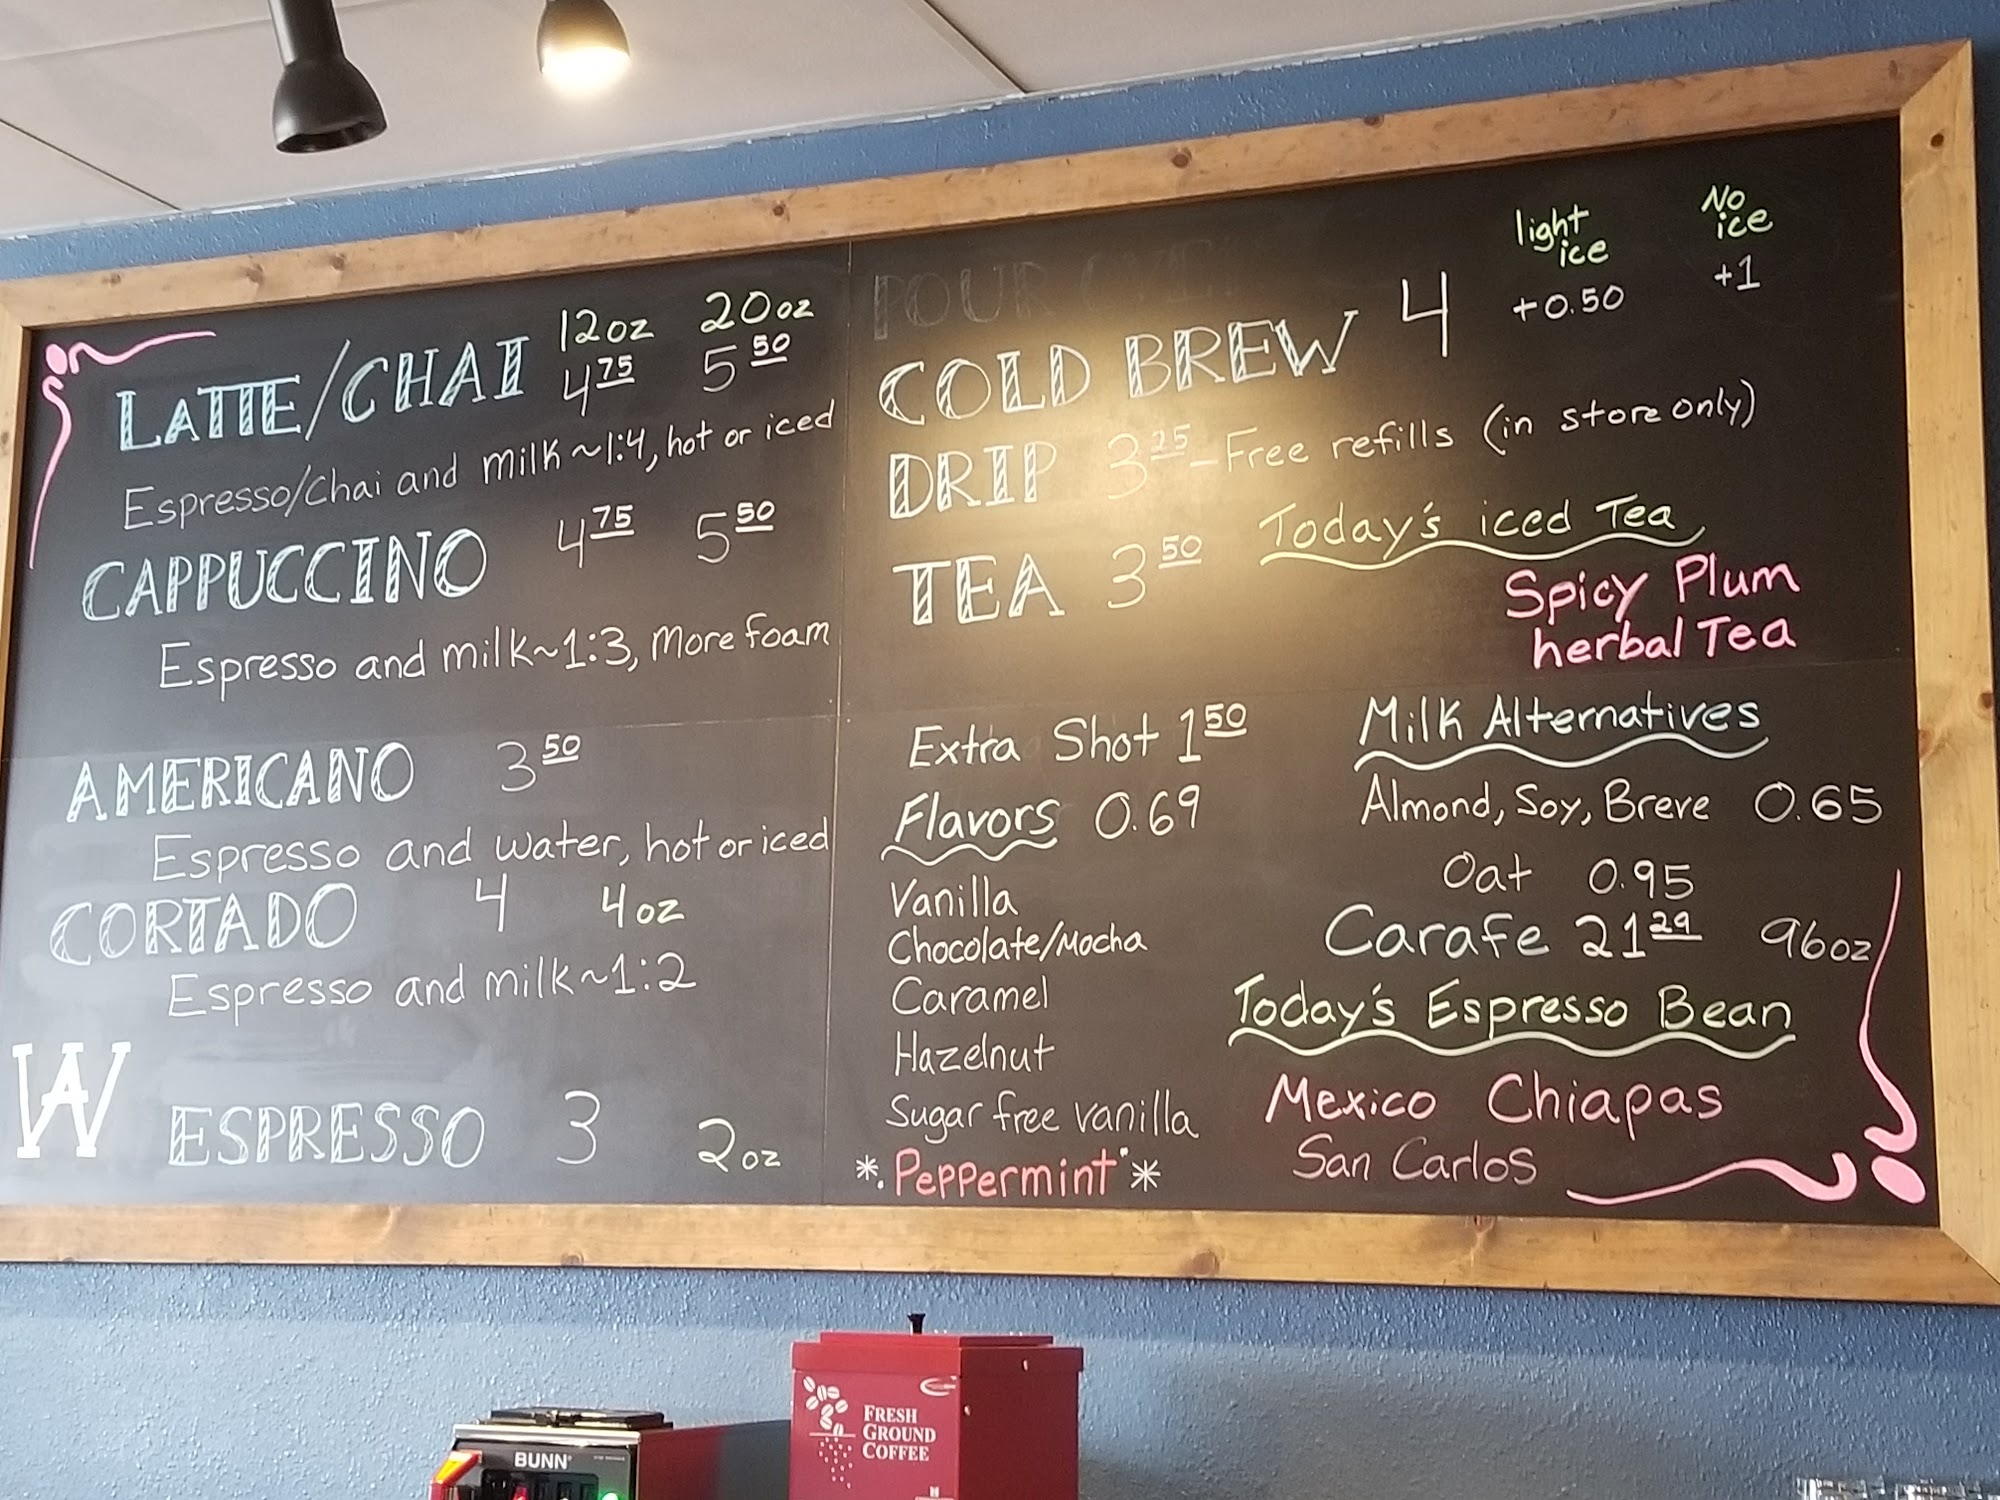 12oz 20oz
LATTE/CHAI 4 75 5 50
Espresso/chai and milk ~1:4, hot or iced
CAPPUCCINO 4 75 5 50
Espresso and milk ~1:3, More foam
AMERICANO 3 50
Espresso and water, hot or iced
CORTADO 4 4oz
Espresso and milk ~1:2
ESPRESSO 3 2oz
light ice No ice
POUR
COLD BREW 4 +0.50 +1
DRIP 3 25 - Free refills (in store only)
TEA 3 50 Today's iced Tea
Spicy Plum
herbal Tea
Extra Shot 1 50
Flavors 0.69
Vanilla
Chocolate/Mocha
Caramel
Hazelnut
Sugar free vanilla
*.Peppermint"*
Milk Alternatives
Almond, Soy, Breve 0.65
Oat 0.95
Carafe 21 29 96oz
Today's Espresso Bean
Mexico Chiapas
San Carlos
BUNN
FRESH
GROUND
COFFEE